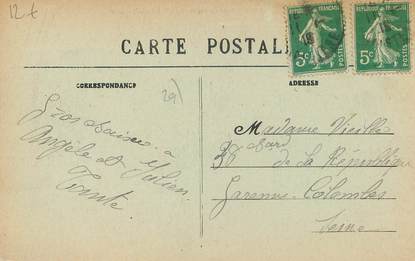 12 €
RÉPUBLIQUE FRANÇAISE
RÉPUBLIQUE FRANÇAISE
5c
5c
POSTES
POSTES
CARTE POSTALE
CORRESPONDANCE
ADRESSE
Gros baisers a
Angèle et Julien
Tante
Madame Vieille
36 bard
de la République
Garenne-Colombes
Seine